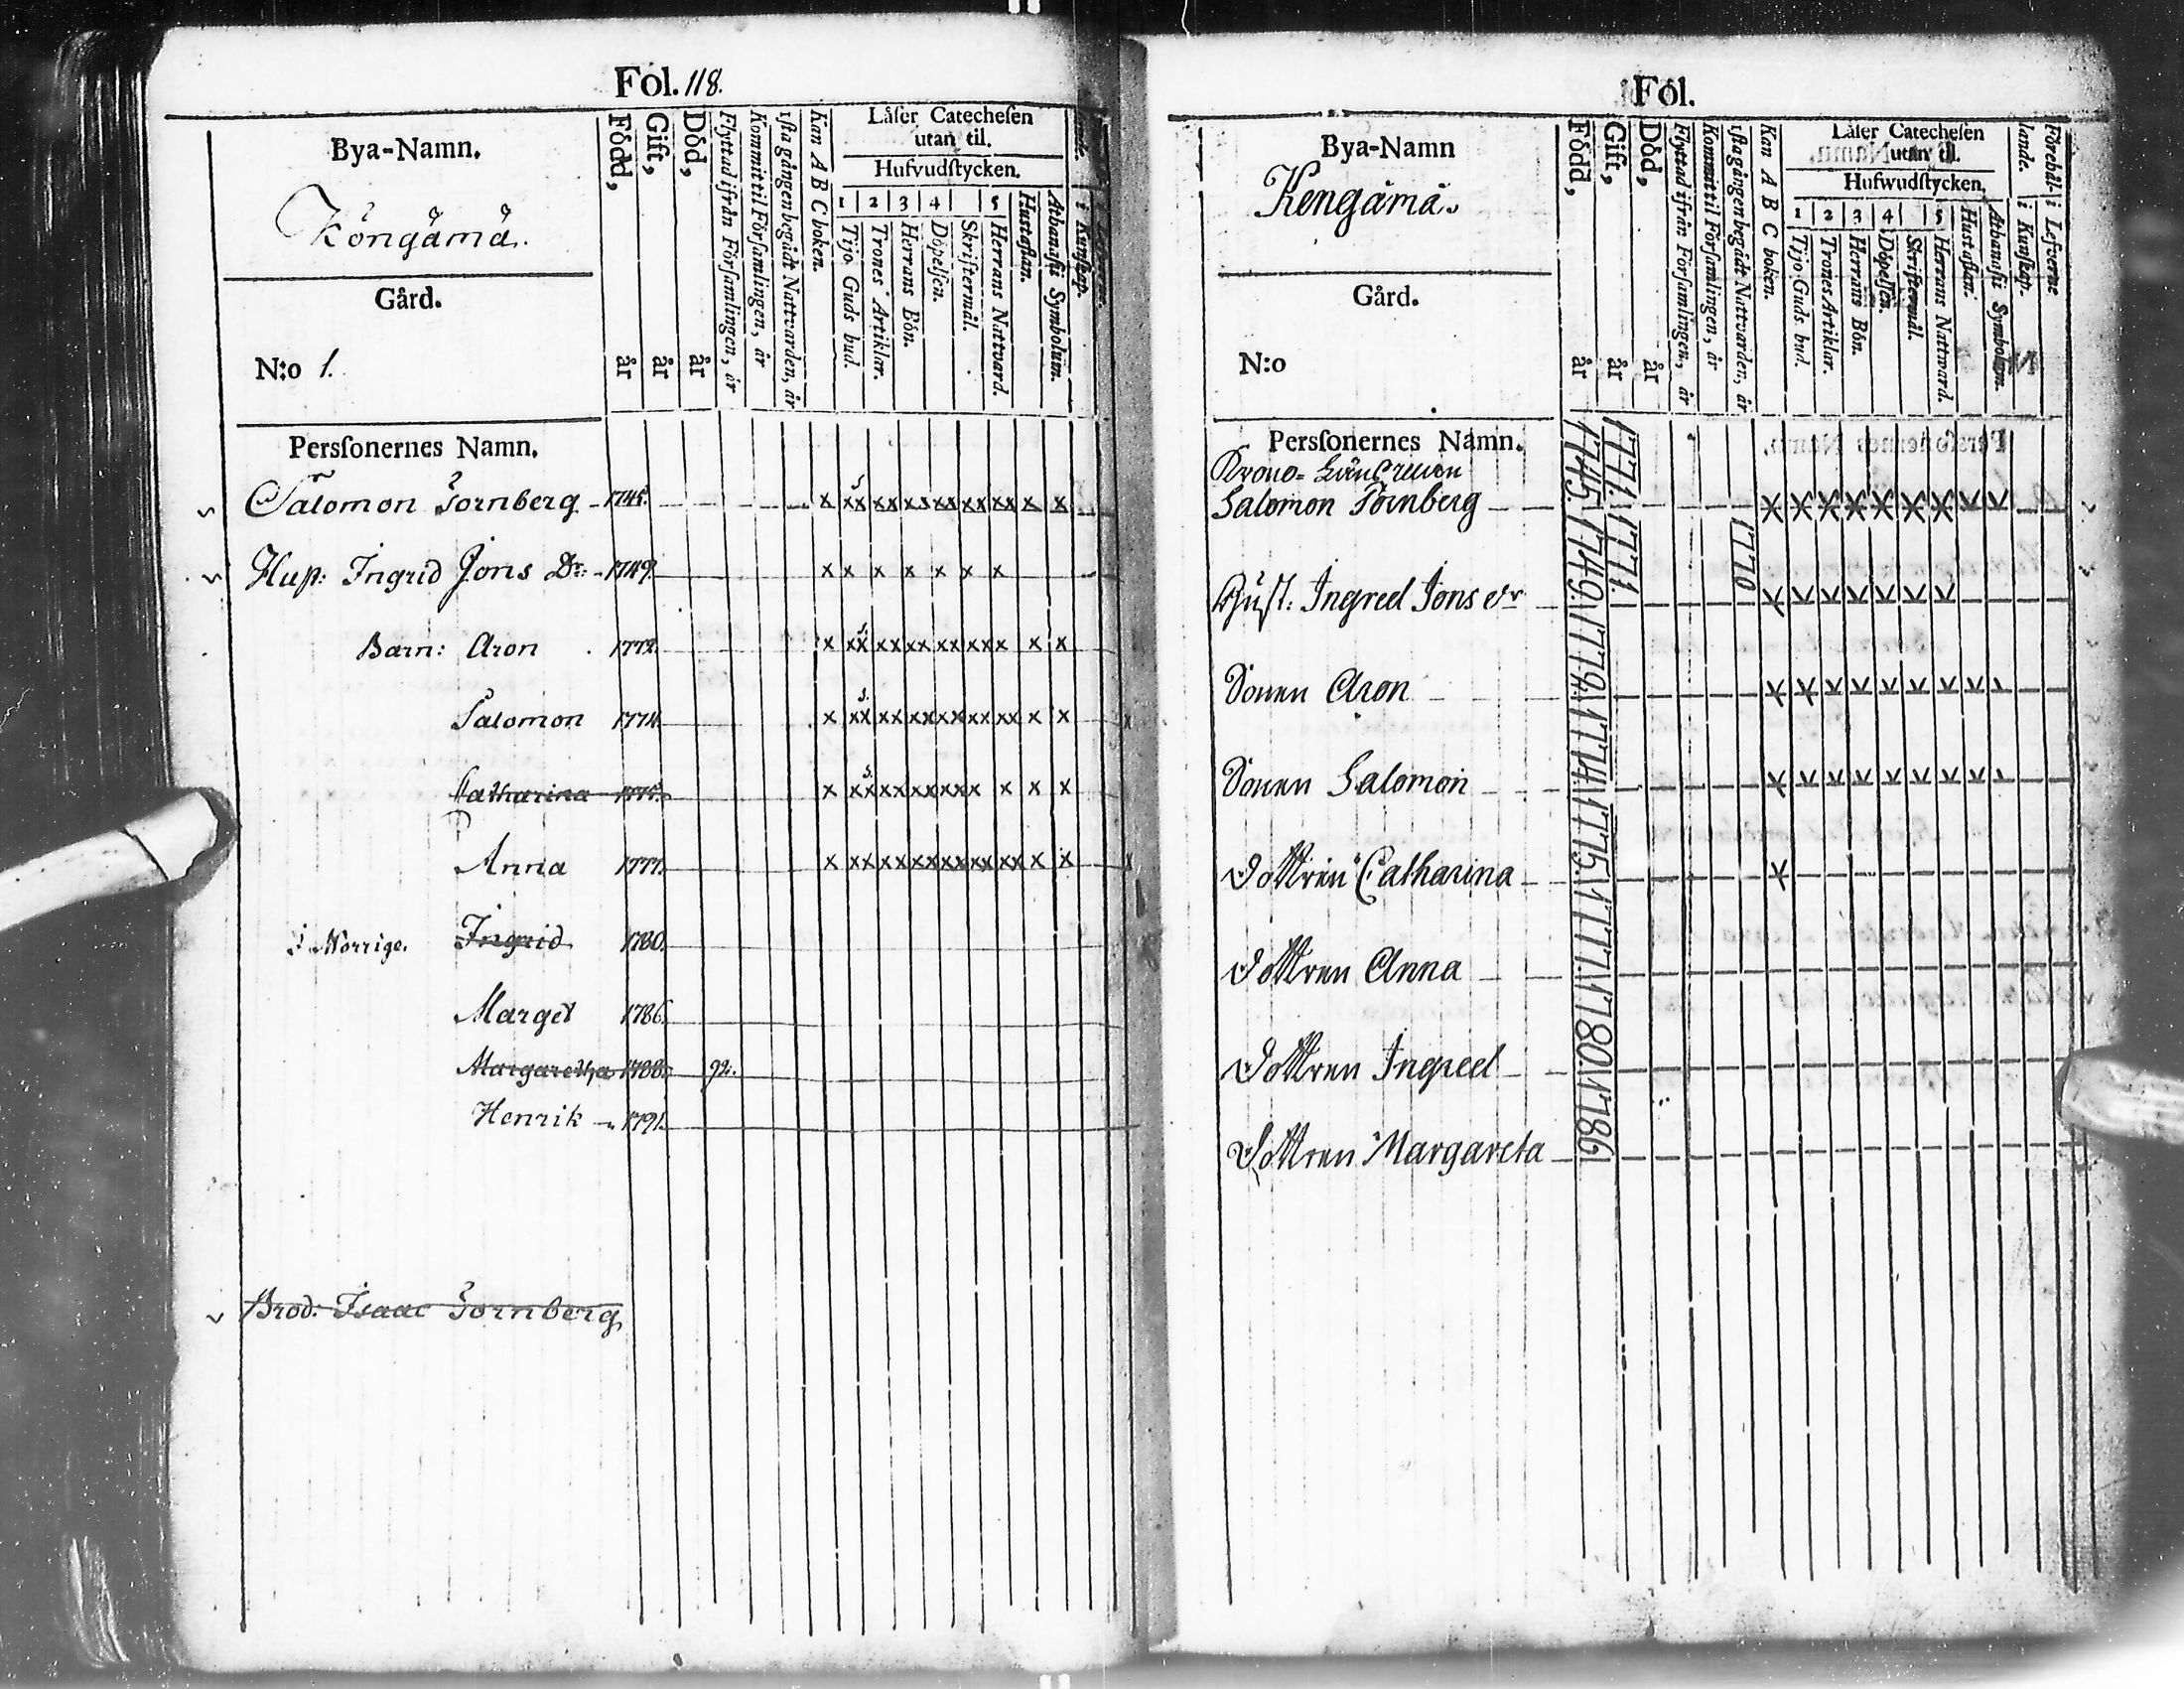 Fol. 118.
Bya-Namn.
Köngämä.
Gård.
N:o 1.
Född, år
Gift, år
Död, år
Flyttad ifrån Församlingen, år
Kommit til Församlingen, år
ista gången begådt Nattvarden, år
Kan A B C boken.
Läser Catechesen
utan til.
Hufvudstycken.
1 2 3 4 5
Tijo Guds bud.
Trones Artiklar.
Herrans Bön.
Döpelsen.
Skriftermål.
Herrans Nattvard.
Hustaflan.
Athanasii Symbolum.
i Kunskap.
Persſonernes Namn.
Salomon Tornberg 1745. x xx xx xx xx xx xx x x
Hus: Ingrid Jons Dr. 1749. x x x x x x x
Barn: Aron 1772. x xx xx xx xx xx x x x
Salomon 1774. x xx xx xx xx xx xx x x
Catharina 1775. x xx xx xx xx xx x x x
Anna 1777. x xx xx xx xx xx xx x x
i Norrige. Ingrid 1780.
Marget 1786.
Margaretha 1788. 92.
Henrik 1791.
Brod: Isaac Tornberg
Fol.
Bya-Namn
Kengämä.
Gård.
N:o
Född, år
Gift, år
Död, år
Flyttad ifrån Församlingen, år
Kommit til Församlingen, år
ista gången begådt Nattvarden, år
Kan A B C boken.
Läser Catechesen
utan til.
Hufwudstycken.
1 2 3 4 5
Tijo Guds bud.
Trones Artiklar.
Herrans Bön.
Döpelsen.
Skriftermål.
Herrans Nattvard.
Hustaflan.
Athanasii Symbolum.
Förehållande.
i Kunskap.
i Lefverne
Persſonernes Namn.
Krono-Länsman
Salomon Tornberg 1745. 1771.
Hust: Ingred Jons dr 1749. 1771. 1770
Sonen Aron 1772.
Sonen Salomon 1774.
Dottren Catharina 1775.
Dottren Anna 1777.
Dottren Ingred 1780.
Dottren Margareta 1786.